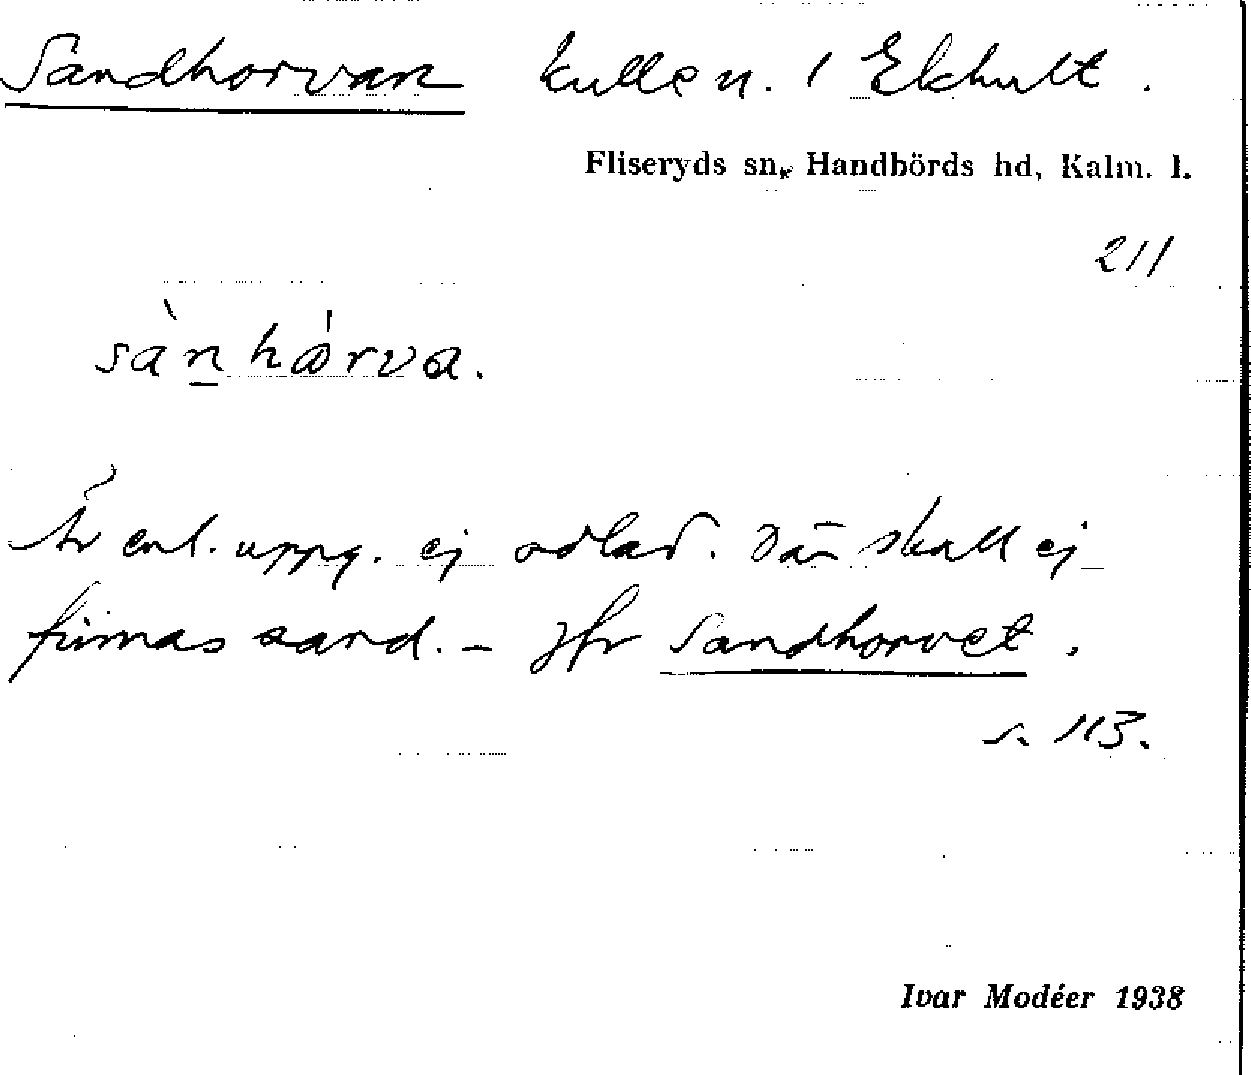 Sandhorvan kulle n. 1 Ekhult.
Fliseryds sn, Handbörds hd, Kalm. l.
211
sànhårva.
Är enl. uppg. ej odlad. Där skall ej
finnas sand. – Jfr Sandhorvet.
s. 113.
Ivar Modéer 1938